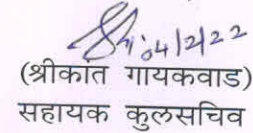 04/2/22
(श्रीकांत गायकवाड)
सहायक कुलसचिव